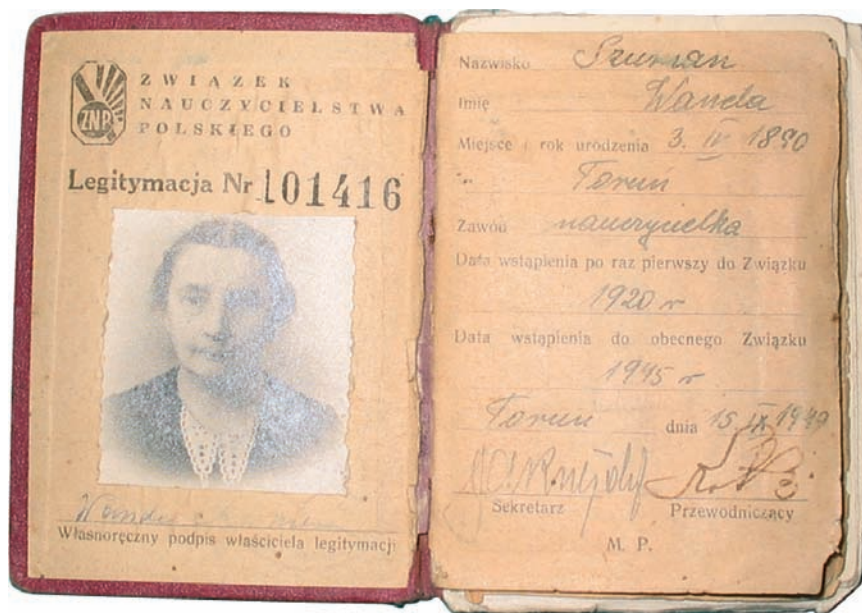 ZNP
ZWIĄZEK
NAUCZYCIELSTWA
POLSKIEGO
Legitymacja Nr 101416
Wanda
Własnoręczny podpis właściciela legitymacji
Nazwisko Szuman
Imię Wanda
Miejsce i rok urodzenia 3. IV 1890
Toruń
Zawód nauczycielka
Data wstąpienia po raz pierwszy do Związku
1920 r
Data wstąpienia do obecnego Związku
1945 r
Toruń dnia 15. IX 1949
Sekretarz Przewodniczący
M. P.